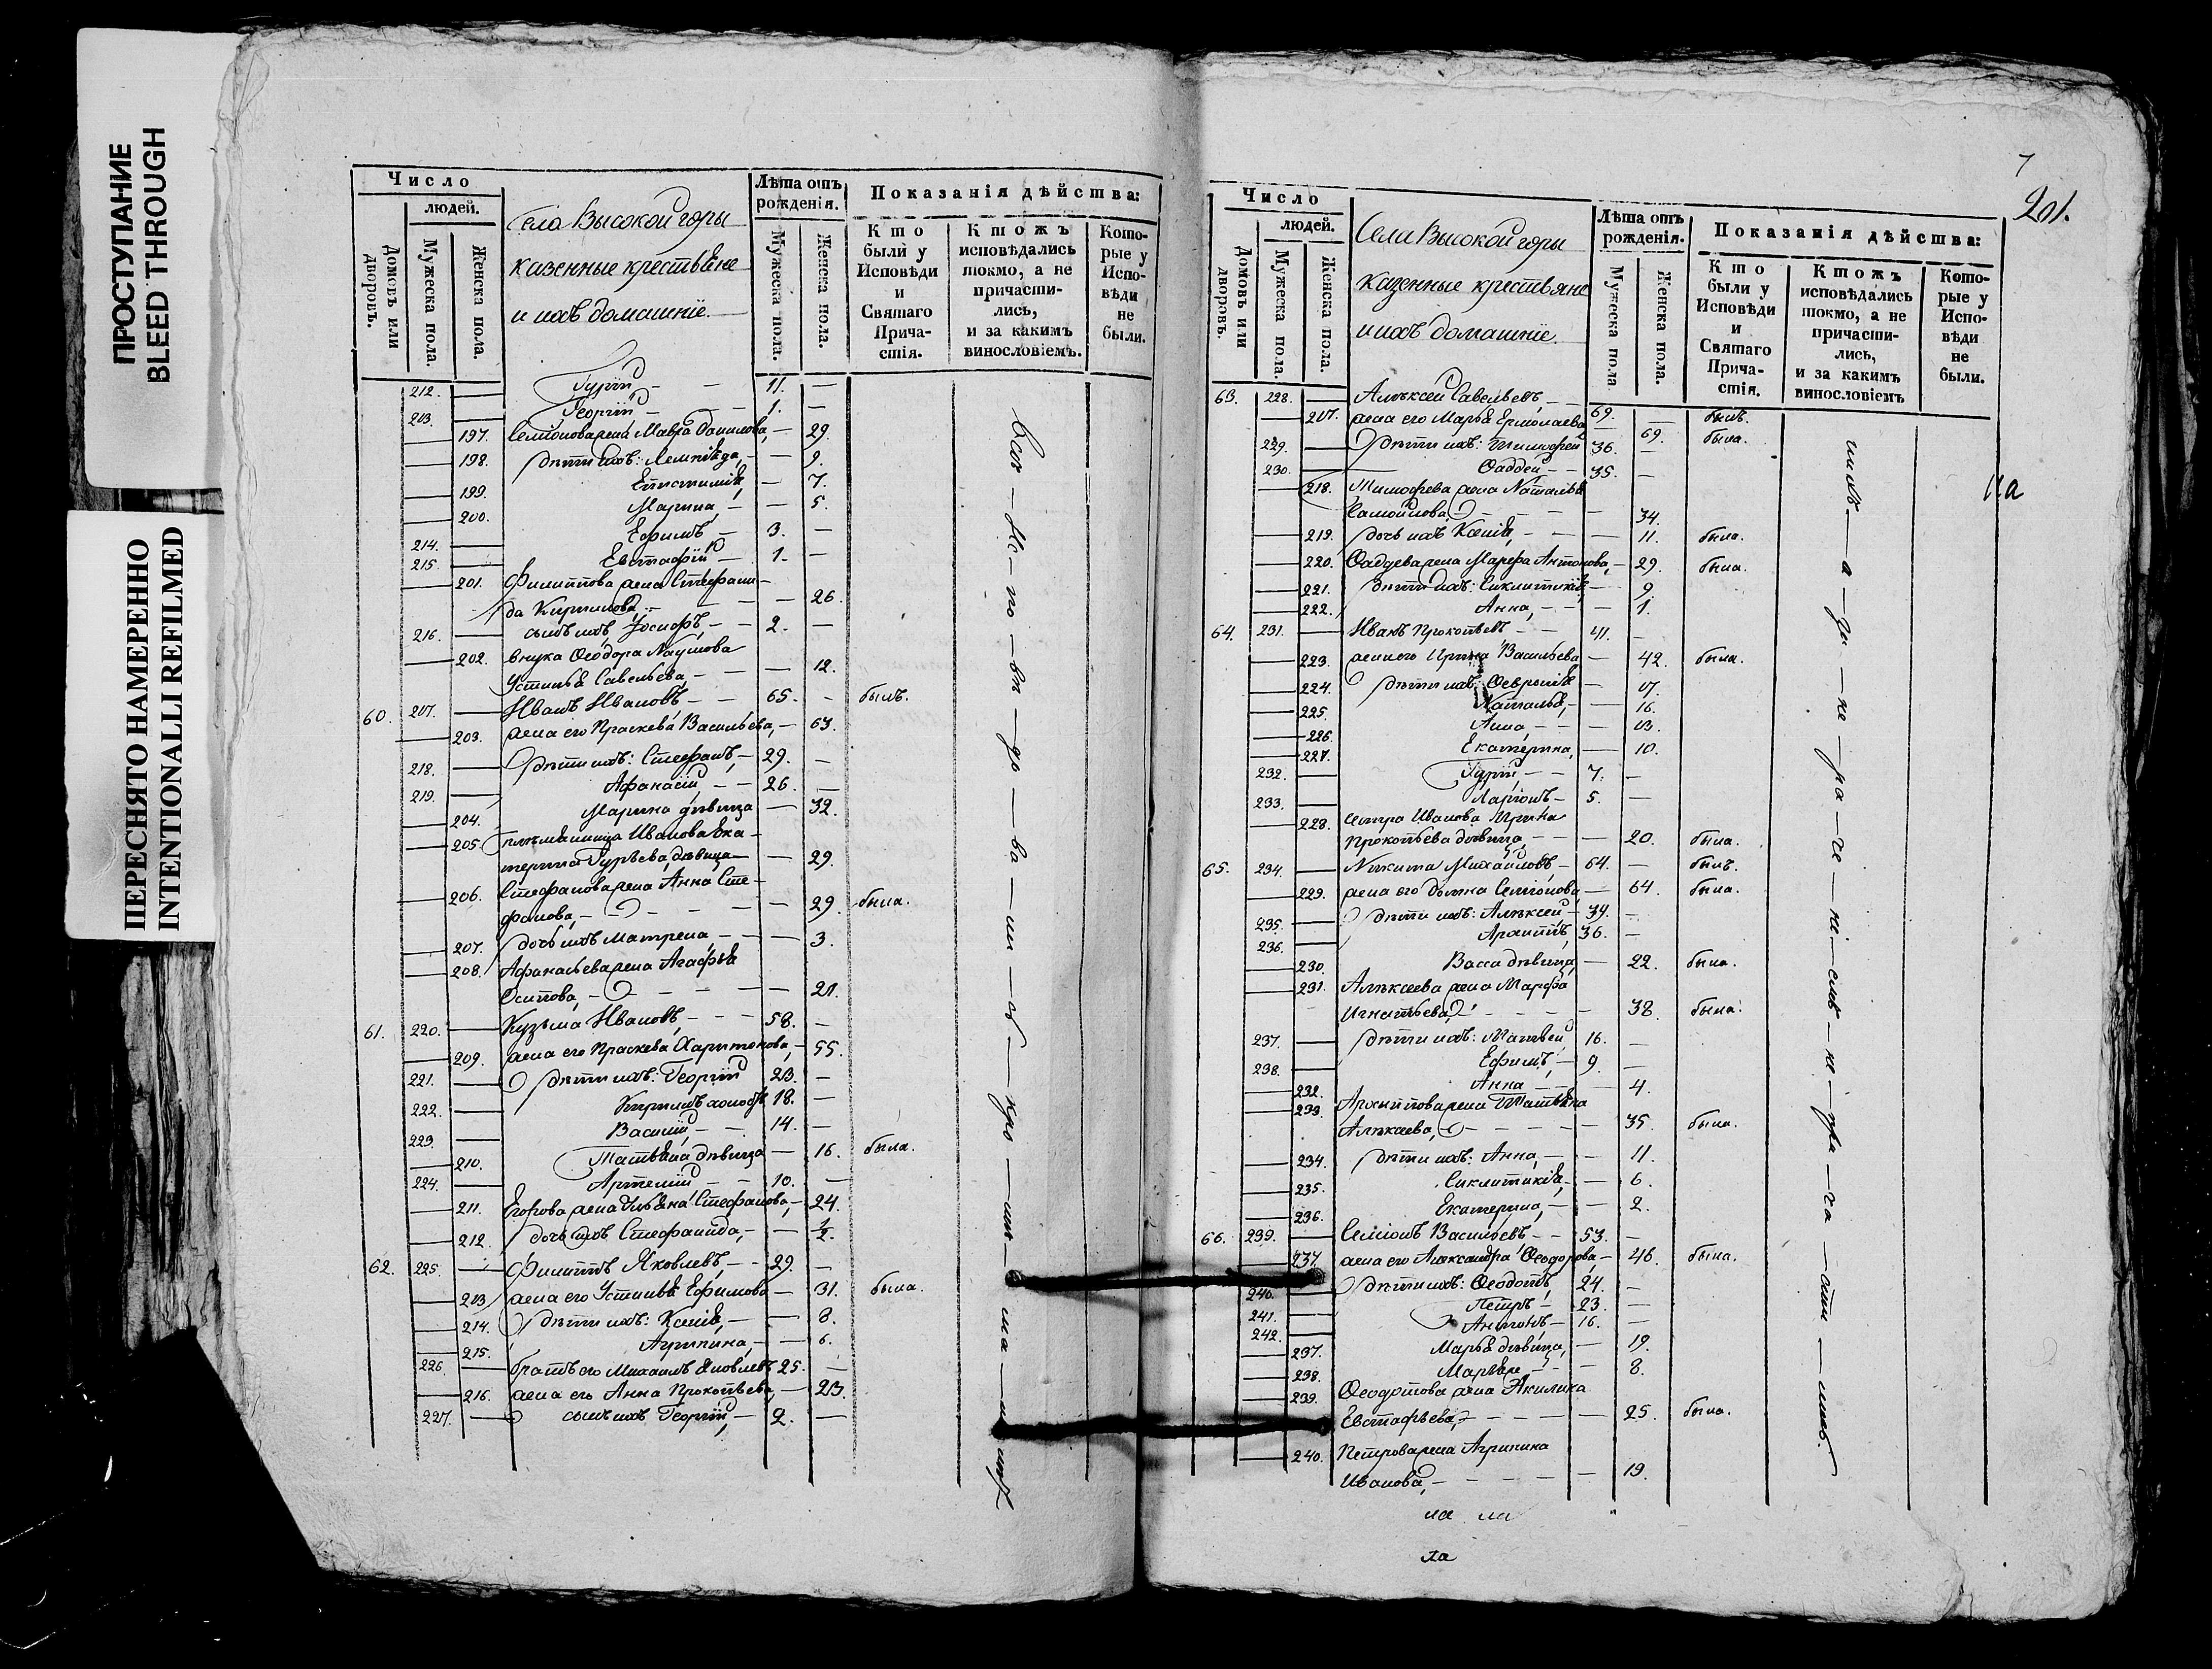 ПРОСТУПАНИЕ
BLEED THROUGH
ПЕРЕСНЯТО НАМЕРЕННО
INTENTIONALLI REFILMED
Число
людей.
Домовъ или дворовъ.
Мужеска пола.
Женска пола.
Села Высокой горы
казенные крестьяне
и ихъ домашніе
Лѣта отъ рожденія.
Мужеска пола.
Женска пола.
Показанія дѣйства:
Кто были у Исповѣди и Святаго Причастія.
Ктожъ исповѣдались токмо, а не причастились, и за какимъ винословіемъ.
Которые у Исповѣди не были.
212. Гурій 11.
213. Георгій 1.
197. Семіонова жена Мавра Данилова, 29.
198. дѣти ихъ: 9.
199. 7.
200. Марина, 5.
214. Ефимъ 3.
215. Евстафій 1.
201. Филиппова жена Стефани-
да Кирилова, 26.
216. сынъ ихъ Іосифъ, 2.
202. внука Ѳеодора Наумова
Устинья Савельева, 12.
60. 217. Иванъ Ивановъ 65. былъ.
203. жена его Праскева Васильева, 63.
218. дѣти ихъ: Стефанъ, 29.
219. Афанасій, 26.
204. Марина дѣвица 32.
205. племянница Иванова Ека-
терина Гурьева дѣвица 29.
206. Стефанова жена Анна Сте-
фанова, 29. была.
207. дочь ихъ Матрена 3.
208. Афанасьева жена Агафья
Осипова, 21.
61. 220. Кузьма Ивановъ, 58.
209. жена его Праскева Харитонова, 55.
221. дѣти ихъ: Георгій 23.
222. Кирилъ холостъ 18.
223. Василій, 14.
210. Татьяна дѣвица 16. была.
224. Артемій 10.
211. Егорова жена Ульяна Стефанова, 24.
212. дочь ихъ Стефанида, ½.
62. 225. Филиппъ Яковлевъ, 29.
213. жена его Устинья Ефимова 31. была.
214. дѣти ихъ: Ксенія, 8.
215. Агрипина, 6.
226. братъ его Михаилъ Яковлевъ 25.
216. жена его Анна Прокопьева, 23.
227. сынъ ихъ Георгій, 2.
7
201.
Число
людей.
Домовъ или дворовъ.
Мужеска пола.
Женска пола.
Села Высокой горы
казенные крестьяне
и ихъ домашніе.
Лѣта отъ рожденія.
Мужеска пола
Женска пола.
Показанія дѣйства:
Кто были у Исповѣди и Святаго Причастія.
Ктожъ исповѣдались токмо, а не причастились, и за какимъ винословіемъ
Которые у Исповѣди не были.
63. 228. Алексей Савельевъ 69. былъ.
217. жена его Марья Ермолаева 69. была.
229. дѣти ихъ: Тимофей 36.
230. Фаддей 35.
218. Тимофеева жена Наталья
Самойлова 34.
219. дочь ихъ Ксенія, 11. была.
220. Фаддеева жена Марфа Антонова, 29. была.
221. дѣти ихъ: Сиклитикія, 9.
222. Анна, 1.
64. 231. Иванъ Прокопьевъ 41.
223. жена его Ирина Васильева 42. была.
224. дѣти ихъ: Февронія 17.
225. Наталья, 16.
226. Анна, 13.
227. Екатерина, 10.
232. Гурій, 7.
233. Ларіонъ 5.
228. сестра Иванова Ирина
Прокопьева дѣвица, 20. была.
65. 234. Никита Михайловъ, 64. былъ.
229. жена его Домна Семіонова, 64. была.
235. дѣти ихъ: Алексей, 39.
236. Архиппъ, 36.
230. Васса дѣвица, 22. была.
231. Алексеева жена Марфа
Игнатьева, 38. была.
237. дѣти ихъ: Матвей, 16.
238. Ефимъ, 9.
232. Анна 4.
233. Архиппова жена Татьяна
Алексеева, 35. была.
234. дѣти ихъ: Анна, 11.
235. Сиклитикія, 6.
236. Екатерина, 2.
66. 239. Семіонъ Васильевъ 53.
237. жена его Александра Ѳеодорова, 46. была.
240. дѣти ихъ: Ѳеодотъ, 24.
241. Петръ 23.
242. Антонъ 16.
237. Марья дѣвица, 19.
238. 8.
239. Ѳеодотова жена Акилина
Евстафьева, 25. была.
240. Петрова жена Агрипина
Иванова, 19.
на
на на
на